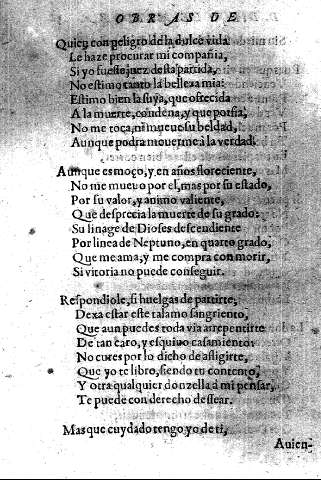 OBRAS DE
Quien con peligro de la dulce vida
Le haze procurar mi compañia,
Si yo fuesse juez desta partida,
No estimo tanto la belleza mia:
Estimo bien la suya, que ofrecida
A la muerte, condena, y que porfia,
No me toca, ni mueue su beldad,
Aunque podra mouerme à la verdad.
Aunque es moço, y en años floreciente,
No me mueuo por el, mas por su estado,
Por su valor, y animo valiente,
Que desprecia la muerte de su grado:
Su linage de Dioses descendiente
Por linea de Neptuno, en quarto grado,
Que me ama, y me compra con morir,
Si vitoria no puede conseguir.
Respondiole, si huelgas de partirte,
Dexa estar este talamo sangriento,
Que aun puedes toda via arrepentirte
De tan caro, y esquiuo casamiento:
No cures por lo dicho de afligirte,
Que yo te libro, siendo tu contento,
Y otra qualquier donzella à mi pensar,
Te puede con derecho dessear.
Mas que cuydado tengo yo de ti,
Auien-